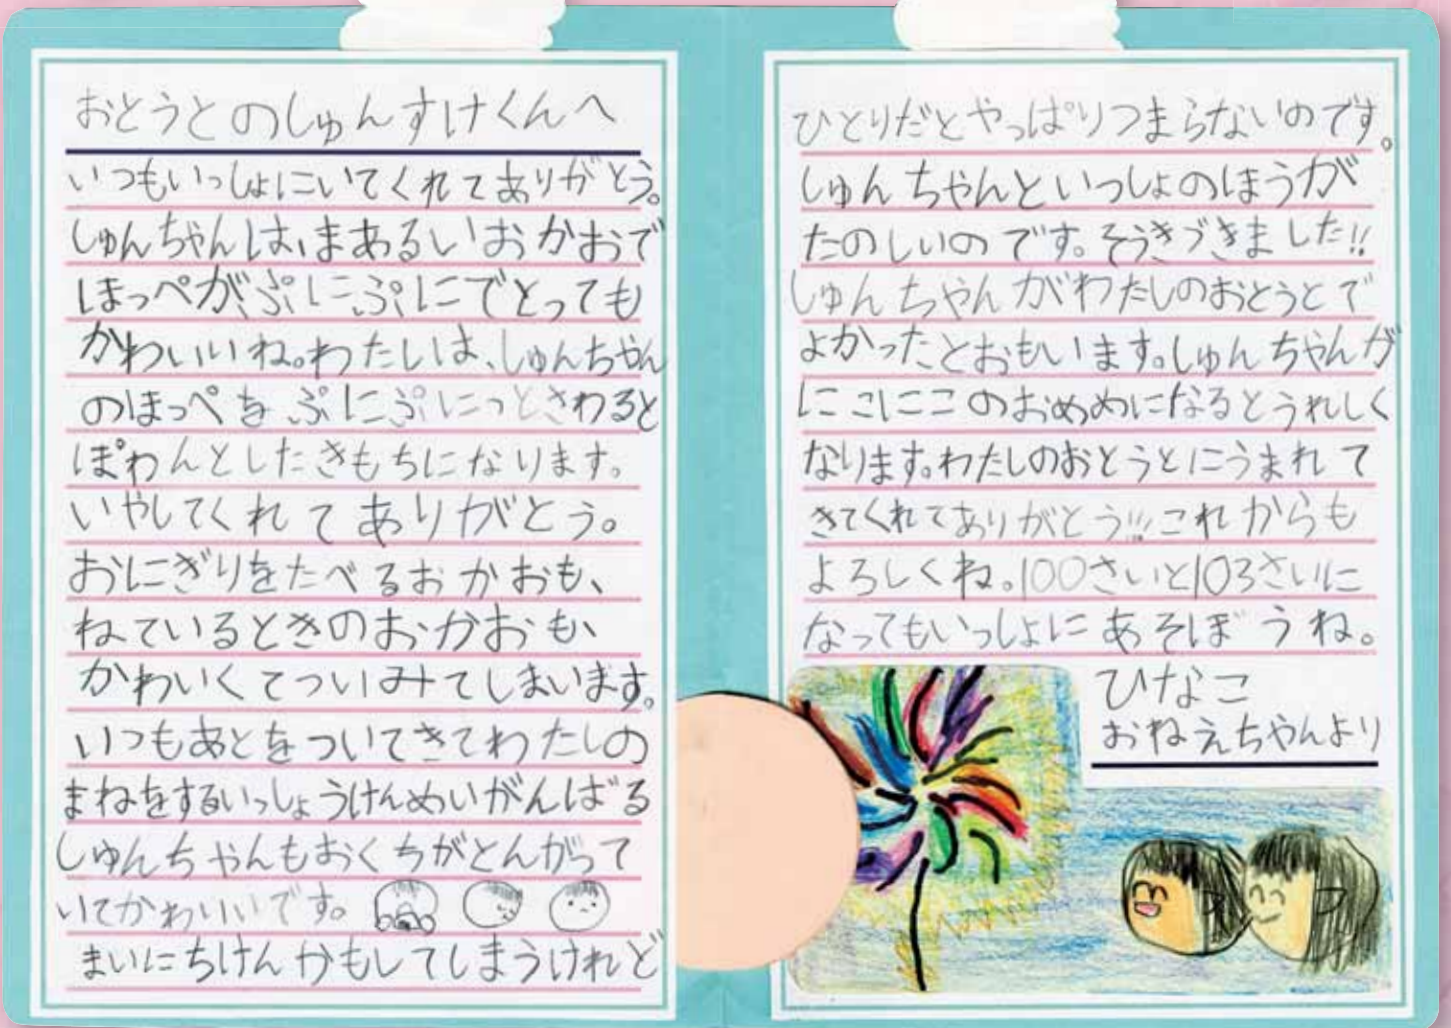 おとうとのしゅんすけくんへ
いつもいっしょにいてくれてありがとう。
しゅんちゃんは、まあるいおかおで
ほっぺがぷにぷにでとっても
かわいいね。わたしは、しゅんちゃん
のほっぺをぷにぷにっとさわると
ぽわんとしたきもちになります。
いやしてくれてありがとう。
おにぎりをたべるおかおも、
ねているときのおかおも、
かわいくてついみてしまいます。
いつもあとをついてきてわたしの
まねをするいっしょうけんめいがんばる
しゅんちゃんもおくちがとんがって
いてかわいいです。
まいにちけんかもしてしまうけれど
ひとりだとやっぱりつまらないのです。
しゅんちゃんといっしょのほうが
たのしいのです。そうきづきました!!
しゅんちゃんがわたしのおとうとで
よかったとおもいます。しゅんちゃんが
にこにこのおめめになるとうれしく
なります。わたしのおとうとにうまれて
きてくれてありがとう!!!これからも
よろしくね。100さいと103さいに
なってもいっしょにあそぼうね。
ひなこ
おねえちゃんより